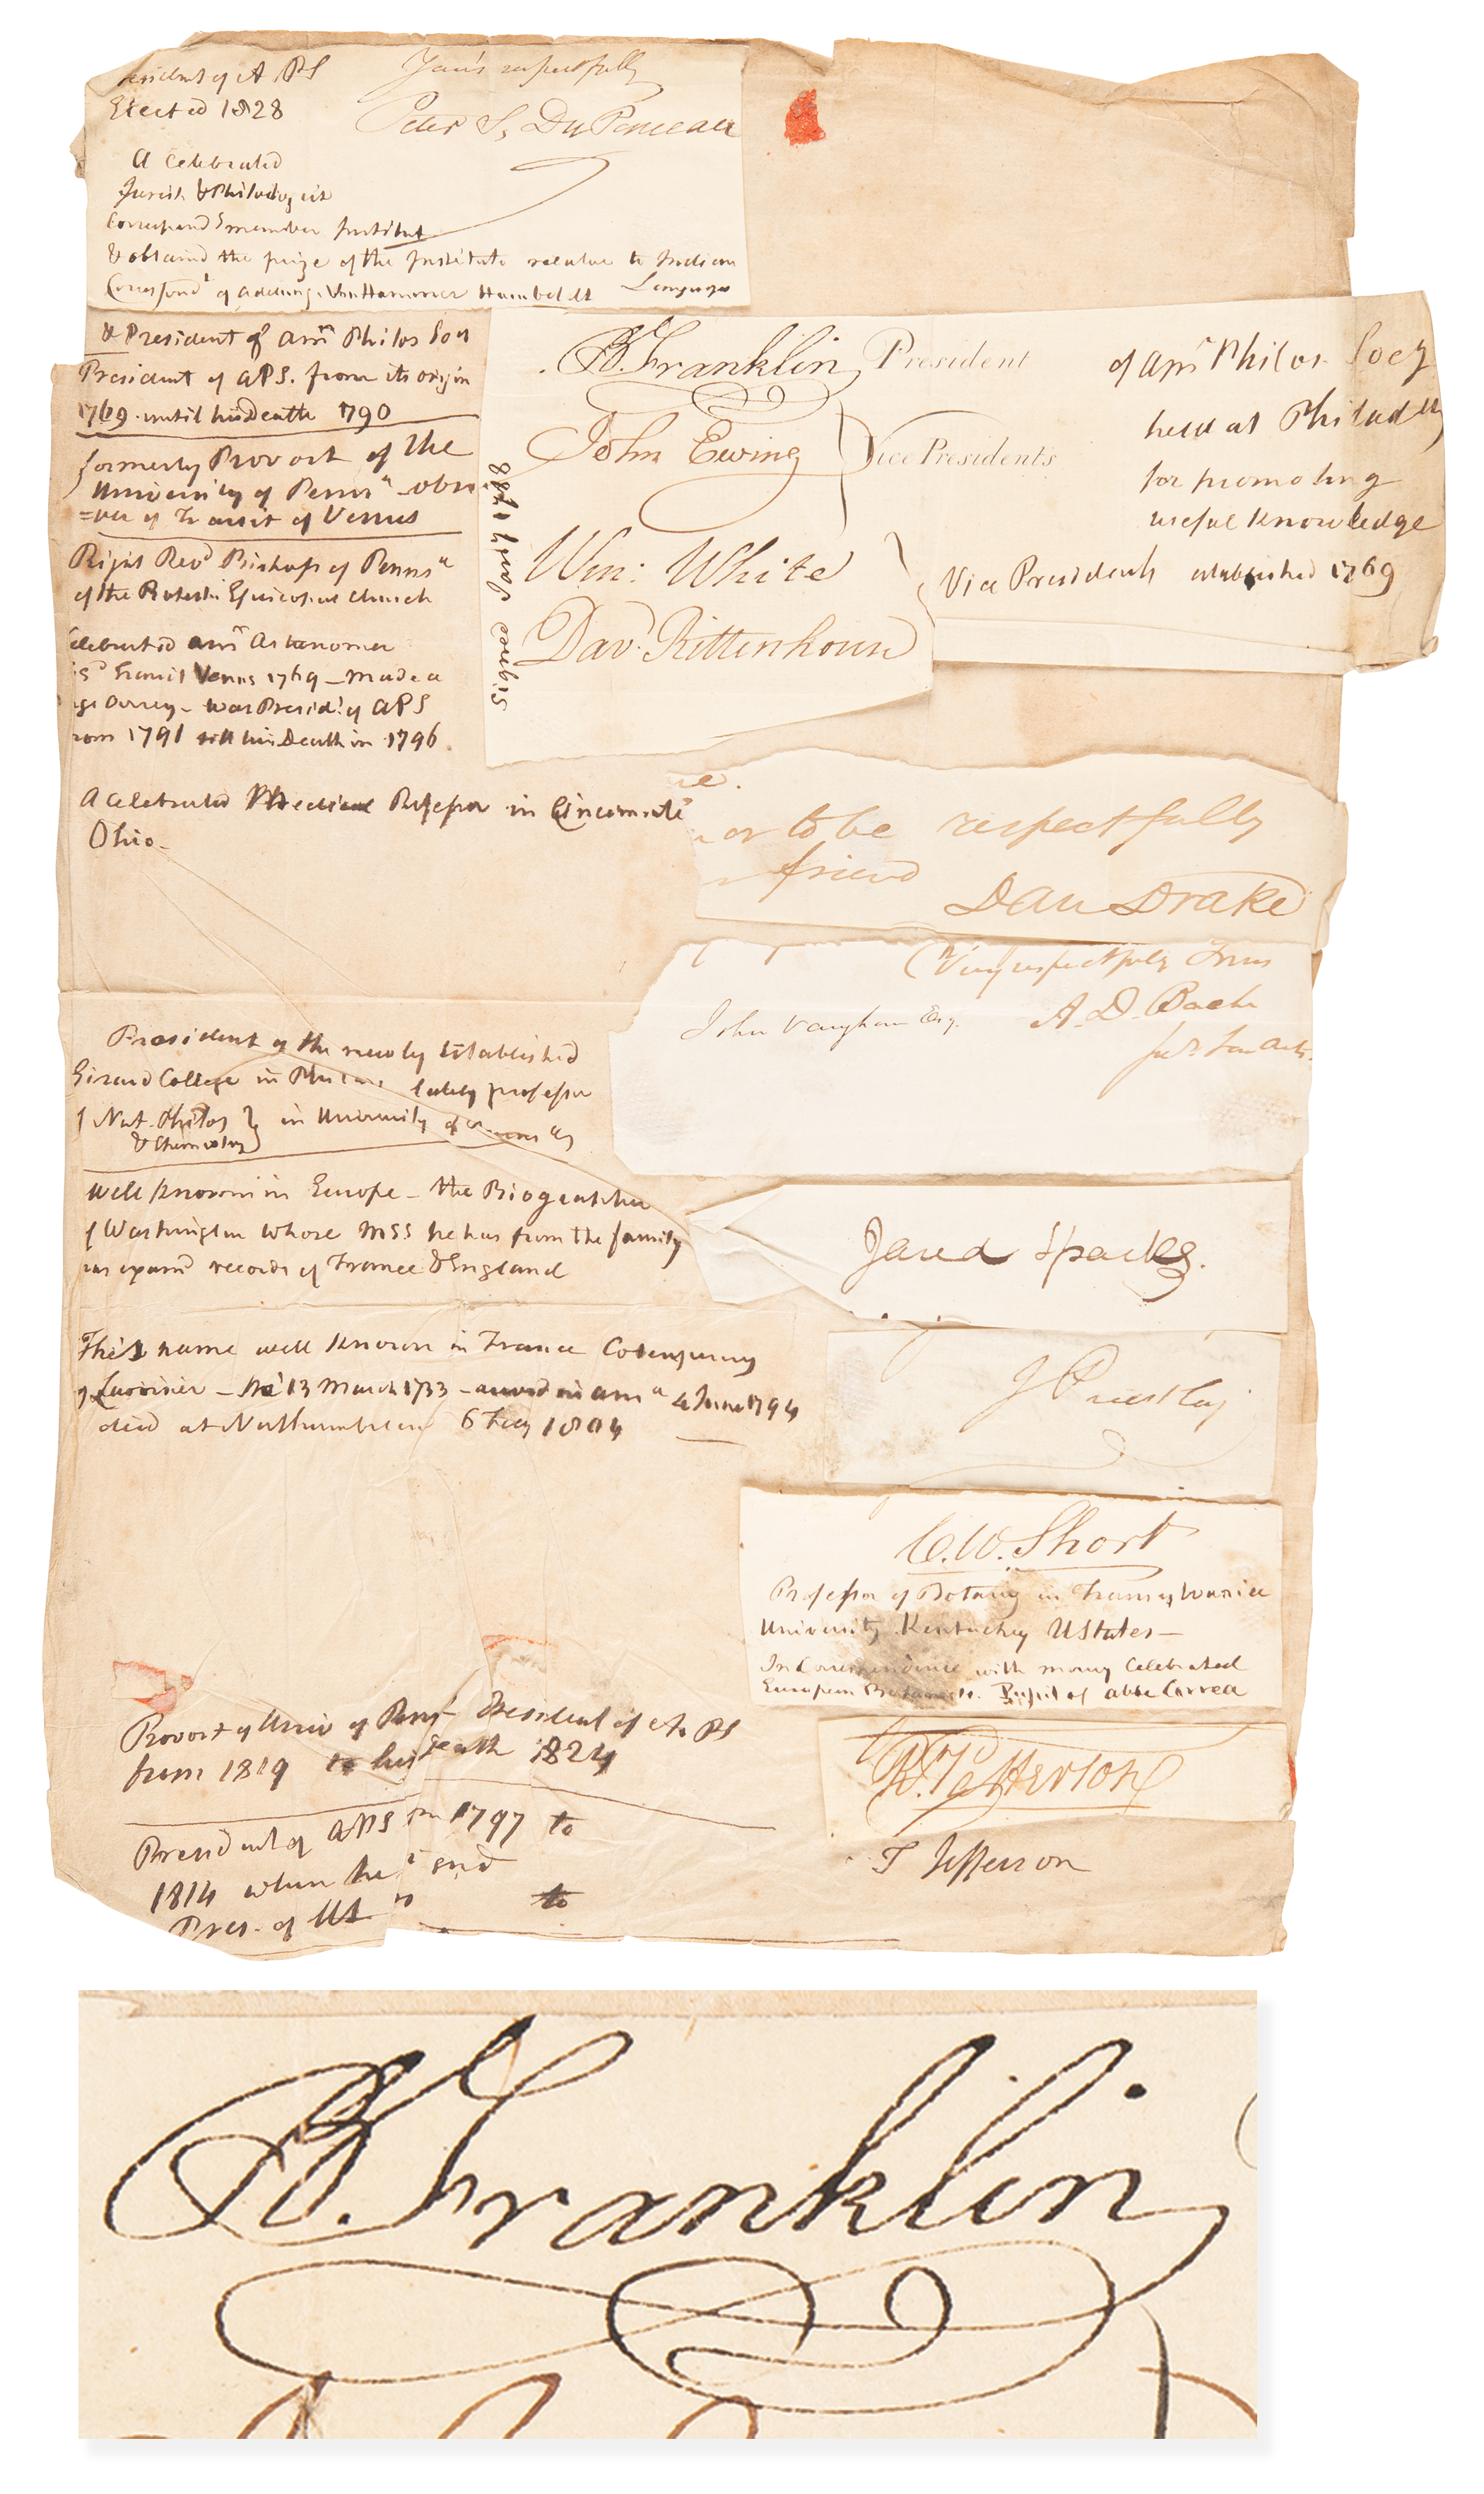 President of A PS
Elected 1828
Your's respectfully
Peter S, Du Ponceau
A Celebrated
Jurist & Philologist
Correspond.g member Institut
& obtained the prize of the Institute relative to Indian
Languages
Correspond.t of Adelung, Von Hammer Humboldt
& President of Am.n Philos Soc.y
President of APS. from its origin
1769 until his Death 1790
B. Franklin President
of Am.n Philos. Socy
held at Philad.
for promoting
useful Knowledge
established 1769
John Ewing
Vice Presidents
Wm: White
Dav.d Rittenhouse
Vice Presidents
since Jan.y 1788
formerly Provost of the
University of Penns.a - obser
=ver of Transit of Venus
Right Rev.d Bishop of Penns.a
of the Protest. Episcopal Church
Celebrated Am.n Astronomer
Transit Venus 1769 - made a
Orrery - was Presid.t of APS
from 1791 till his Death in 1796.
A Celebrated Medical Professor in Cincinnati
Ohio -
or to be respectfully
friend
Dan Drake
Very respectfully Yours
John Vaughan Esq.
A. D. Bache
President of the newly Established
Girard College in lately professor
of Nat. Philos } in University of
& Chemistry
Well known in Europe - the Biographer
of Washington whose MSS he has from the family
has exam.d records of France & England
Jared Sparks.
This name well known in France Cotemporary
of Lavoisier - 13 March 1733 - arrived in Am.a 4 June 1794
died at Northumberland 6 Feby 1804
J Priestley
C. W. Short
Professor of Botany in Transylvania
University Kentuckey UStates -
In Correspondence with many Celebrated
European Botanists. Pupil of Abbe Correa
Provost of Univ of Penn.a - President of A. PS
from 1819 to his Death 1824
R. Patterson
President of APS from 1797 to
1814 when he
Pres. of US
to
T Jefferson
B. Franklin